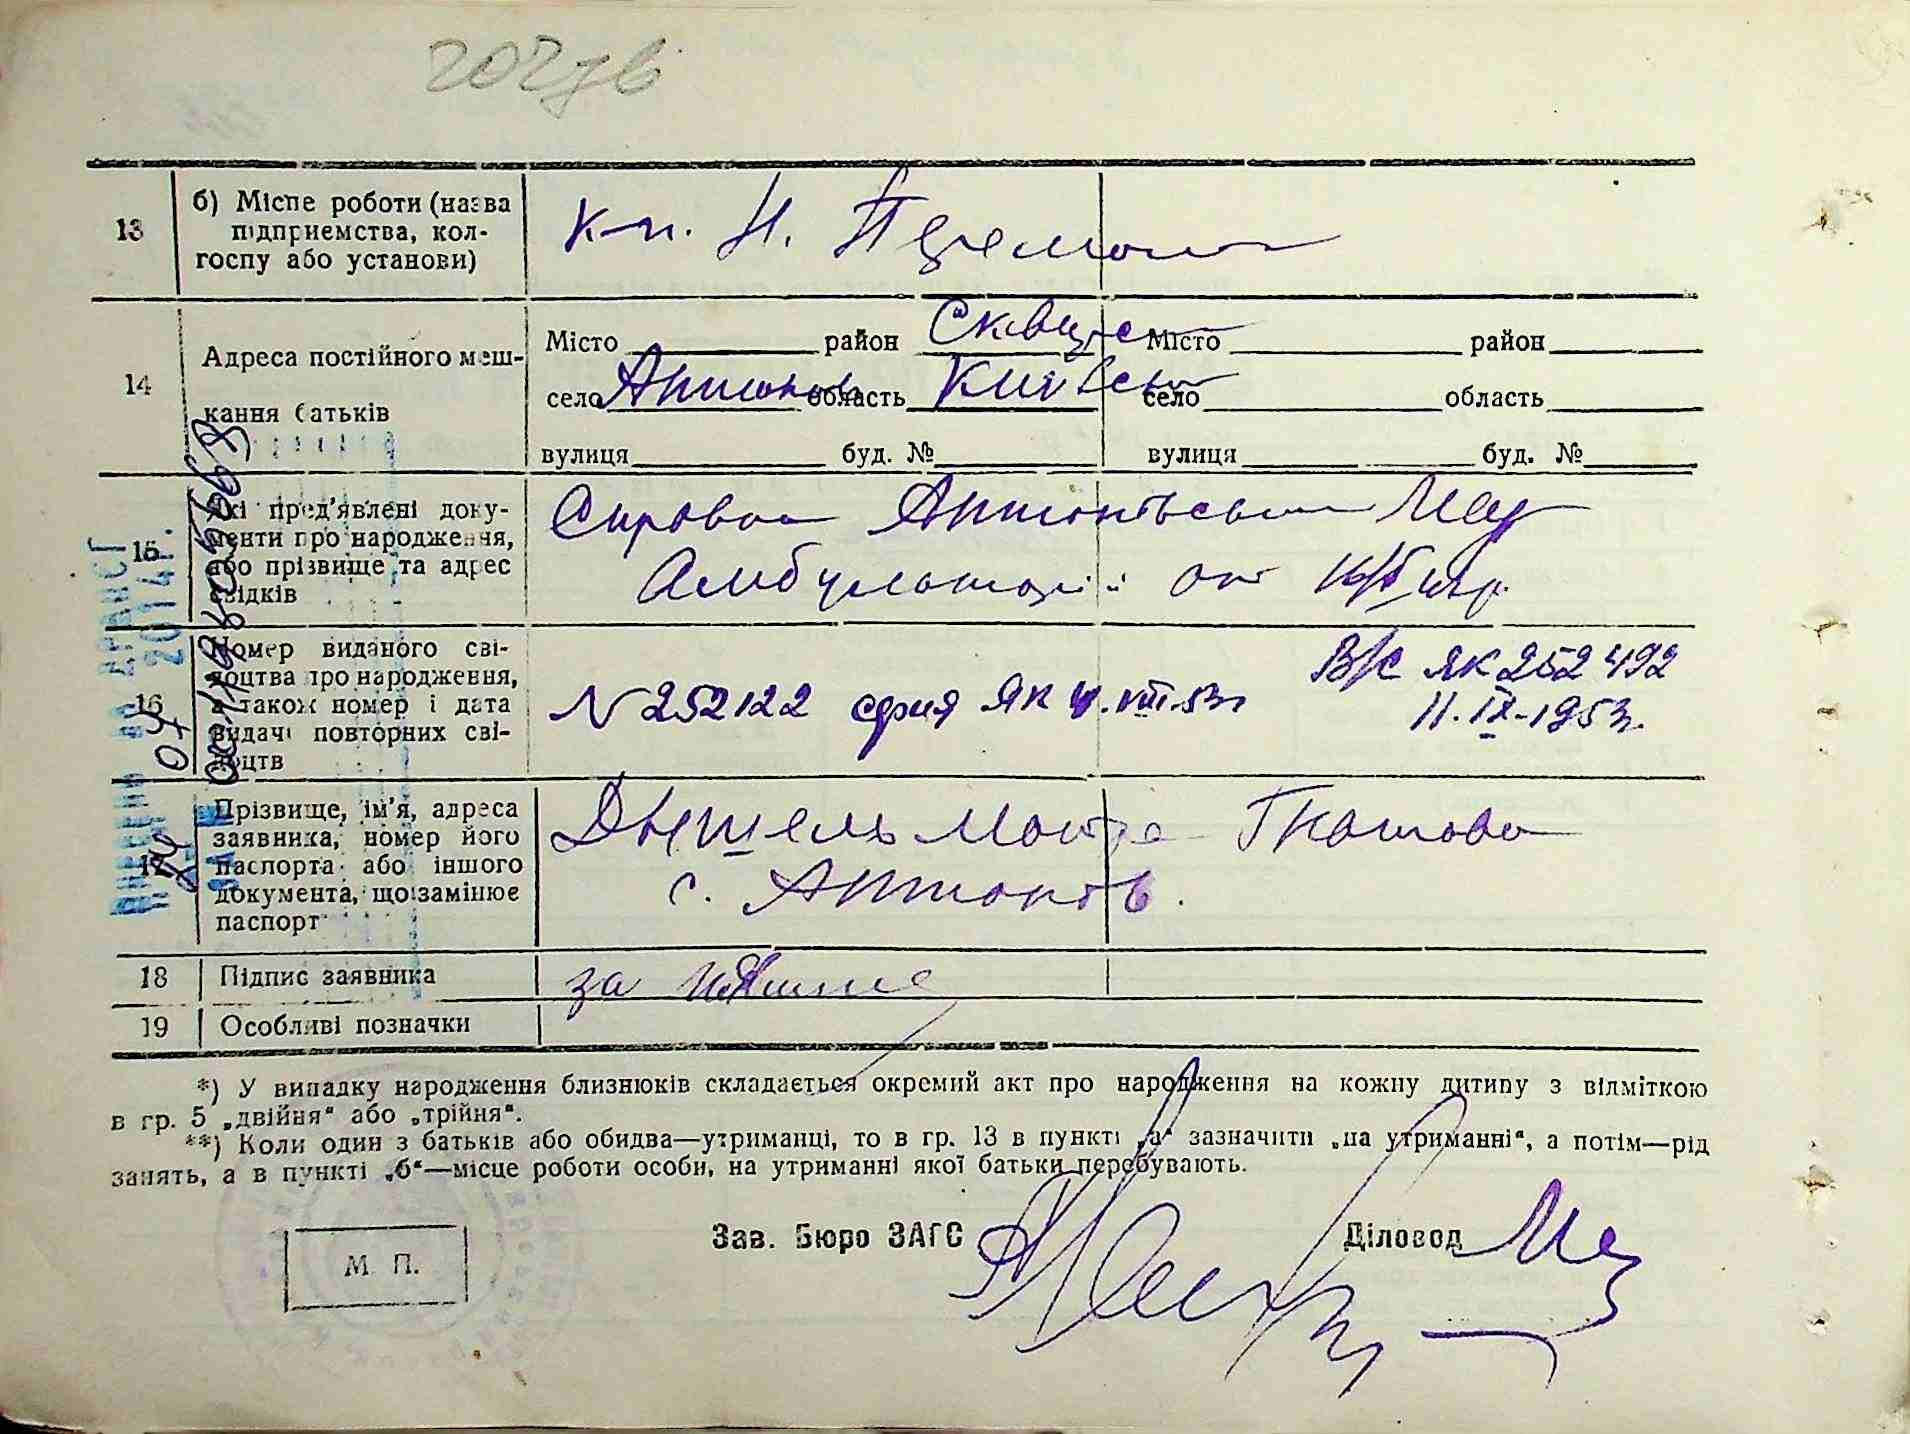 13 б) Місце роботи (назва підприємства, кол-
госпу або установи)
к-п. Н. Перемога
14 Адреса постійного меш-
кання батьків
Місто район Сквирс Місто район
село Антонов область Київськ село область
вулиця буд. № вулиця буд. №
15 Які пред'явлені доку-
менти про народження,
або прізвище та адрес
свідків
Справка Антонівської Мед
Амбулаторії от
16 Номер виданого сві-
доцтва про народження,
а також номер і дата
видачі повторних сві-
доцтв
N 252122 серия ЯК 4.VIII.53г
В/с ЯК 252492
11.IX-1953г.
17 Прізвище, ім'я, адреса
заявника, номер його
паспорта або іншого
документа, що замінює
паспорт
Дышель Мотре Гнатова
с. Антонов.
18 Підпис заявника
за
19 Особливі позначки
*) У випадку народження близнюків складається окремий акт про народження на кожну дитину з відміткою
в гр. 5 „двійня“ або „трійня“.
**) Коли один з батьків або обидва—утриманці, то в гр. 13 в пункті „а“ зазначити „на утриманні“, а потім—рід
занять, а в пункті „б“—місце роботи особи, на утриманні якої батьки перебувають.
М. П.
Зав. Бюро ЗАГС Діловод